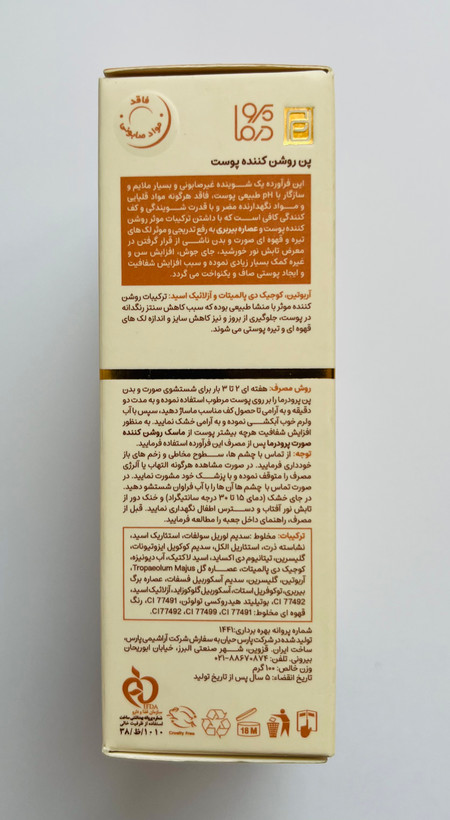 فاقد
مواد صابونی
پرو
درما
پن روشن کننده پوست
این فرآورده یک شوینده غیرصابونی و بسیار ملایم و
سازگار با pH طبیعی پوست، فاقد هرگونه مواد قلیایی
و مواد نگهدارنده مضر و با قدرت شویندگی و کف
کنندگی کافی است که با داشتن ترکیبات موثر روشن
کننده پوست و عصاره بیربری به رفع تدریجی و موثر لک های
تیره و قهوه ای صورت و بدن ناشی از قرار گرفتن در
معرض تابش نور خورشید، جای جوش، افزایش سن و
غیره کمک بسیار زیادی نموده و سبب افزایش شفافیت
و ایجاد پوستی صاف و یکنواخت می گردد.
آربوتین، کوجیک دی پالمیتات و آزلائیک اسید: ترکیبات روشن
کننده موثر با منشا طبیعی بوده که سبب کاهش سنتز رنگدانه
در پوست، جلوگیری از بروز و نیز کاهش سایز و اندازه لک های
قهوه ای و تیره پوستی می شوند.
روش مصرف: هفته ای ۲ تا ۳ بار برای شستشوی صورت و بدن
پن پرودرما را بر روی پوست مرطوب استفاده نموده و به مدت دو
دقیقه و به آرامی تا حصول کف مناسب ماساژ دهید، سپس با آب
ولرم خوب آبکشی نموده و به آرامی خشک نمایید. به منظور
افزایش شفافیت هرچه بیشتر پوست از ماسک روشن کننده
صورت پرودرما پس از مصرف این فرآورده استفاده فرمایید.
توجه: از تماس با چشم ها، سطوح مخاطی و زخم های باز
خودداری فرمایید. در صورت مشاهده هرگونه التهاب یا آلرژی
مصرف را متوقف نموده و با پزشک خود مشورت نمایید. در
صورت تماس با چشم ها آن ها را با آب فراوان شستشو دهید.
در جای خشک (دمای ۱۵ تا ۳۰ درجه سانتیگراد) و خنک دور از
تابش نور آفتاب و دسترس اطفال نگهداری نمایید. قبل از
مصرف، راهنمای داخل جعبه را مطالعه فرمایید.
ترکیبات: مخلوط :سدیم لوریل سولفات، استئاریک اسید،
نشاسته ذرت، استئاریل الکل، سدیم کوکویل ایزوتیونات،
گلیسرین، تیتانیوم دی اکساید، اسید لاکتیک، آب دیونیزه،
کوجیک دی پالمیتات، عصاره گل Tropaeolum Majus،
آربوتین، گلیسرین، سدیم آسکوربیل فسفات، عصاره برگ
بیربری، توکوفریل استات، آسکوربیل گلوکوزاید، آزلائیک اسید،
CI 77491 ،CI 77492، بوتیلیتد هیدروکسی تولوئن، رنگ
قهوه ای مخلوط: CI 77491 ،CI 77499 ،CI77492.
شماره پروانه بهره برداری: ۱۴۴۱
تولید شده در شرکت پارس حیان به سفارش شرکت آراشیمی پارس،
ساخت ایران. قزوین، شهر صنعتی البرز، خیابان ابوریحان
بیرونی. تلفن: ۸۸۶۷۰۸۷۴-۰۲۱
وزن خالص: ۱۰۰ گرم
تاریخ انقضاء: ۵ سال پس از تاریخ تولید
IFDA
سازمان غذا و دارو
شماره پروانه بهداشتی ساخت
استفاده از ظرفیت خالی
۳۸/ظ/۱۰۱۰
Cruelty Free
18 M